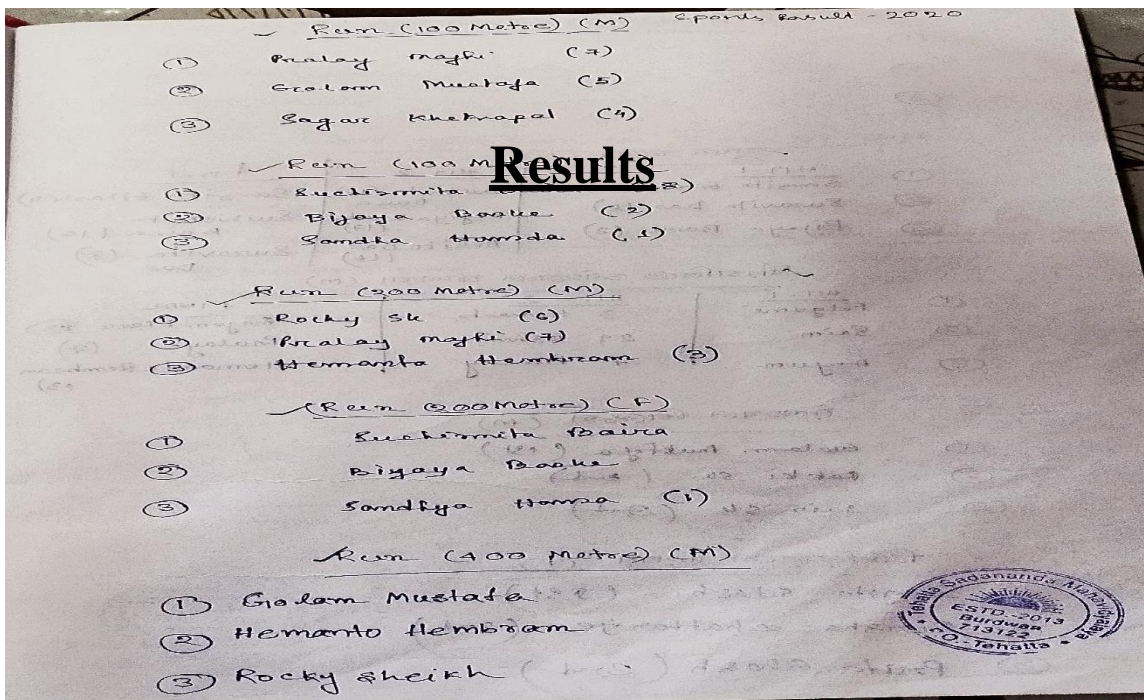 Run (100 Metre) (M) Sports Result - 2020
① Pralay Majhi (7)
② Golam Mustafa (5)
③ Sagar Khetrapal (4)
Run (100 M
Results
① Suchismita
② Bijaya Baske (2)
③ Sandha Hamda (1)
Run (200 Metre) (M)
① Rocky Sk (6)
② Pralay Majhi (7)
③ Hemanta Hembram (3)
Run (200 Metre) (F)
① Suchismita Baira
② Bijaya Baske
③ Sandhya Hamsa (1)
Run (400 Metre) (M)
① Golam Mustafa
② Hemanto Hembram
③ Rocky Sheikh
Tehatta Sadananda Mahavidyalaya
ESTD. - 2013
Burdwan
713122
P.O.- Tehatta